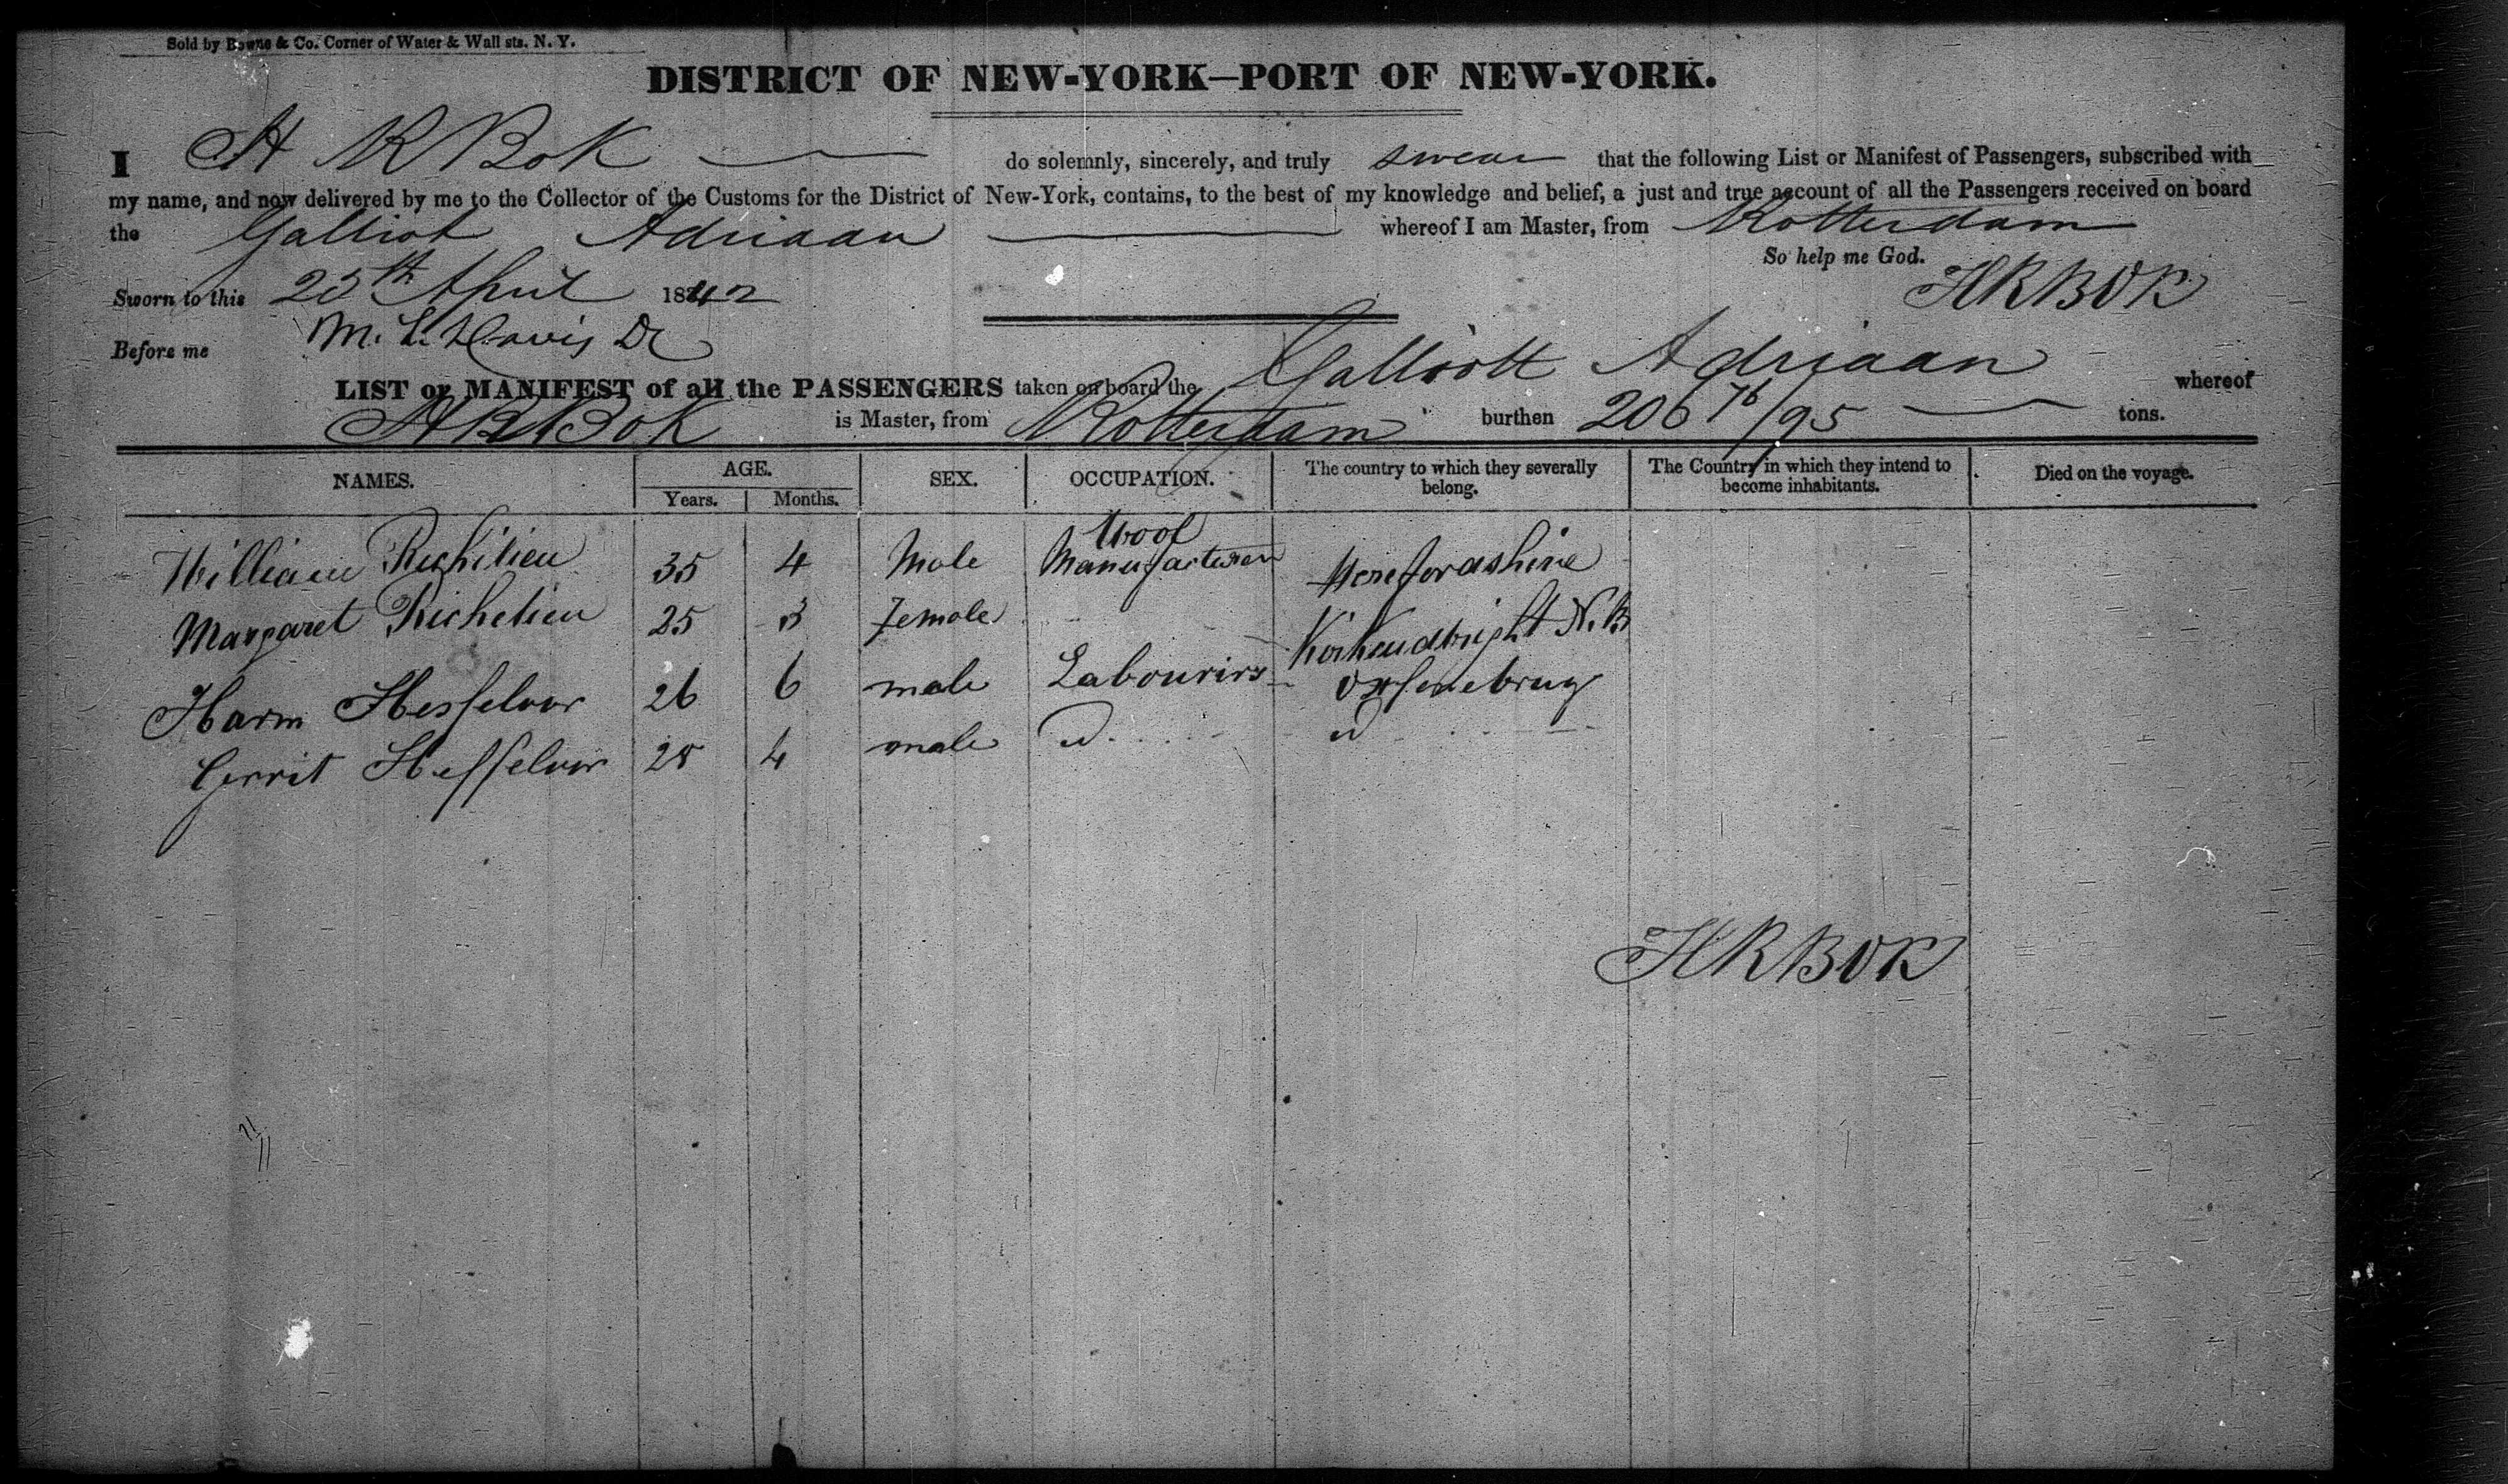 Sold by Bowne & Co. Corner of Water & Wall sts. N. Y.
DISTRICT OF NEW-YORK—PORT OF NEW-YORK.
I H R Bok do solemnly, sincerely, and truly swear that the following List or Manifest of Passengers, subscribed with
my name, and now delivered by me to the Collector of the Customs for the District of New-York, contains, to the best of my knowledge and belief, a just and true account of all the Passengers received on board
the Galliot Adriaan whereof I am Master, from Rotterdam
So help me God.
Sworn to this 25th April 1842 HRBOK
Before me M. L. Davis
LIST or MANIFEST of all the PASSENGERS taken on board the Galliott Adriaan whereof
H R Bok is Master, from Rotterdam burthen 206 76/95 tons.
NAMES. AGE. Years. Months. SEX. OCCUPATION. The country to which they severally belong. The Country in which they intend to become inhabitants. Died on the voyage.
William Richilieu 35 4 Male Wool Manufacturer Herefordshire
Margaret Richelieu 25 3 Female Kirkcudbright N.B
Harm 26 6 male Labourirs
Gerrit 4 male
HRBOK